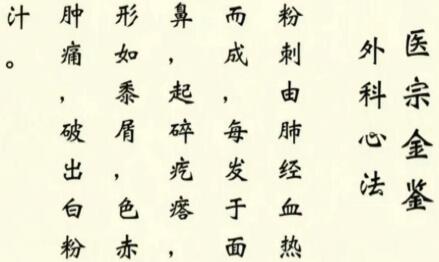 医宗金鉴
外科心法
粉刺由肺经血热
而成，每发于面
鼻，起碎疙瘩，
形如黍屑，色赤
肿痛，破出白粉
汁。